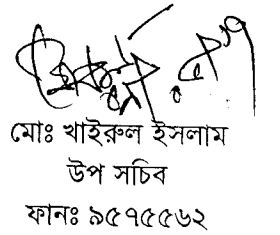 মোঃ খাইরুল ইসলাম
উপ সচিব
ফানঃ ৯৫৭৫৫৬২